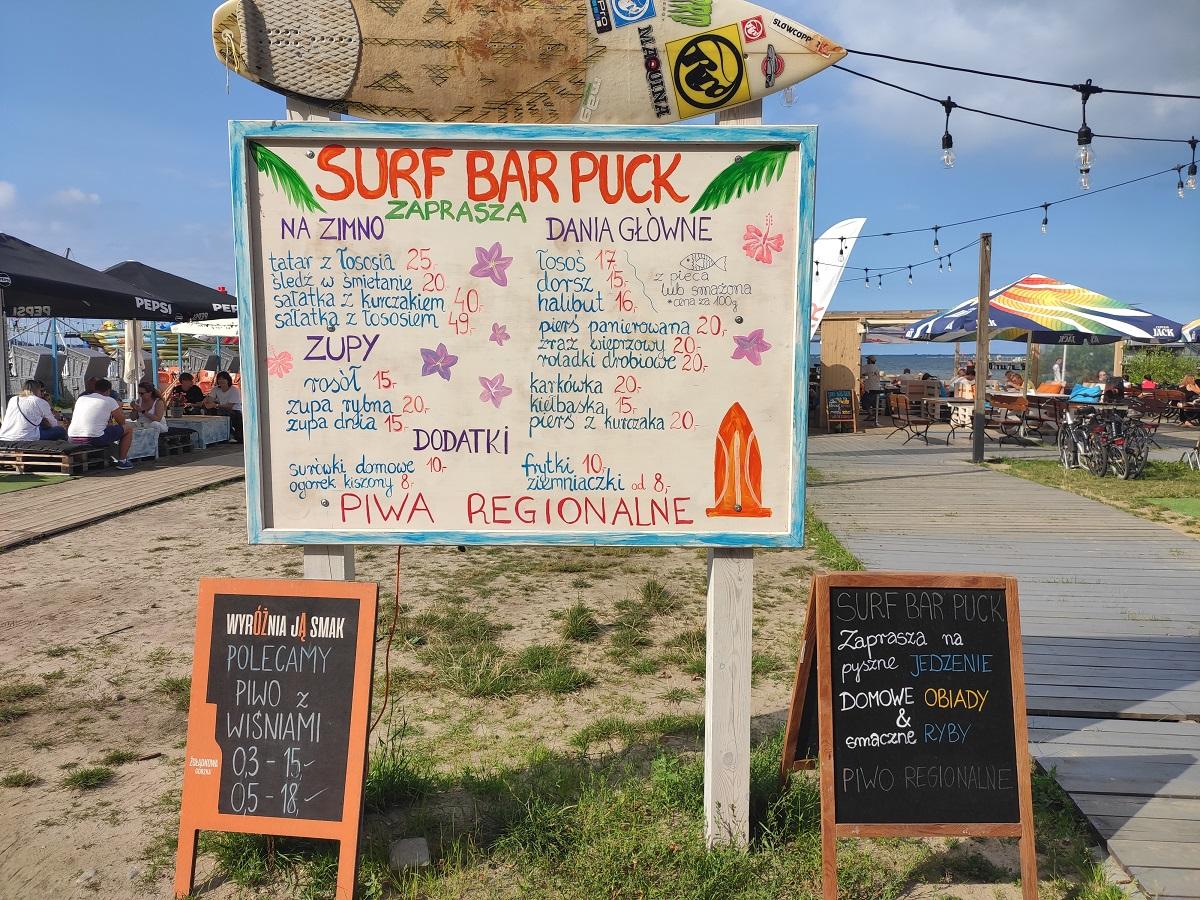 SLOWCOPP
MAQUINA
SURF BAR PUCK
ZAPRASZA
NA ZIMNO
tatar z łososia 25,-
śledź w śmietanie 20
sałatka z kurczakiem 40,-
sałatka z łososiem 49,-
ZUPY
rosół 15,-
zupa rybna 20,-
zupa dnia 15,-
DANIA GŁÒWNE
łosoś 17,-
dorsz 15,-
halibut 16,-
z pieca
lub smażona
*cena za 100g
pierś panierowana 20,-
zraz wieprzowy 20,-
roladki drobiowe 20,-
karkówka 20,-
kiełbaska 15,-
pierś z kurczaka 20,-
DODATKI
surówki domowe 10,-
ogórek kiszony 8,-
frytki 10,-
ziemniaczki od 8,-
PIWA REGIONALNE
PEPSI
PEPSI
PEPSI
CAPTAIN
JACK
WYRÓŻNIA JĄ SMAK
POLECAMY
PIWO z
WIŚNIAMI
0,3 - 15,-
0,5 - 18,-
ŻOŁĄDKOWA
GORZKA
SURF BAR PUCK
Zaprasza na
pyszne JEDZENIE
DOMOWE OBIADY
&
smaczne RYBY
PIWO REGIONALNE